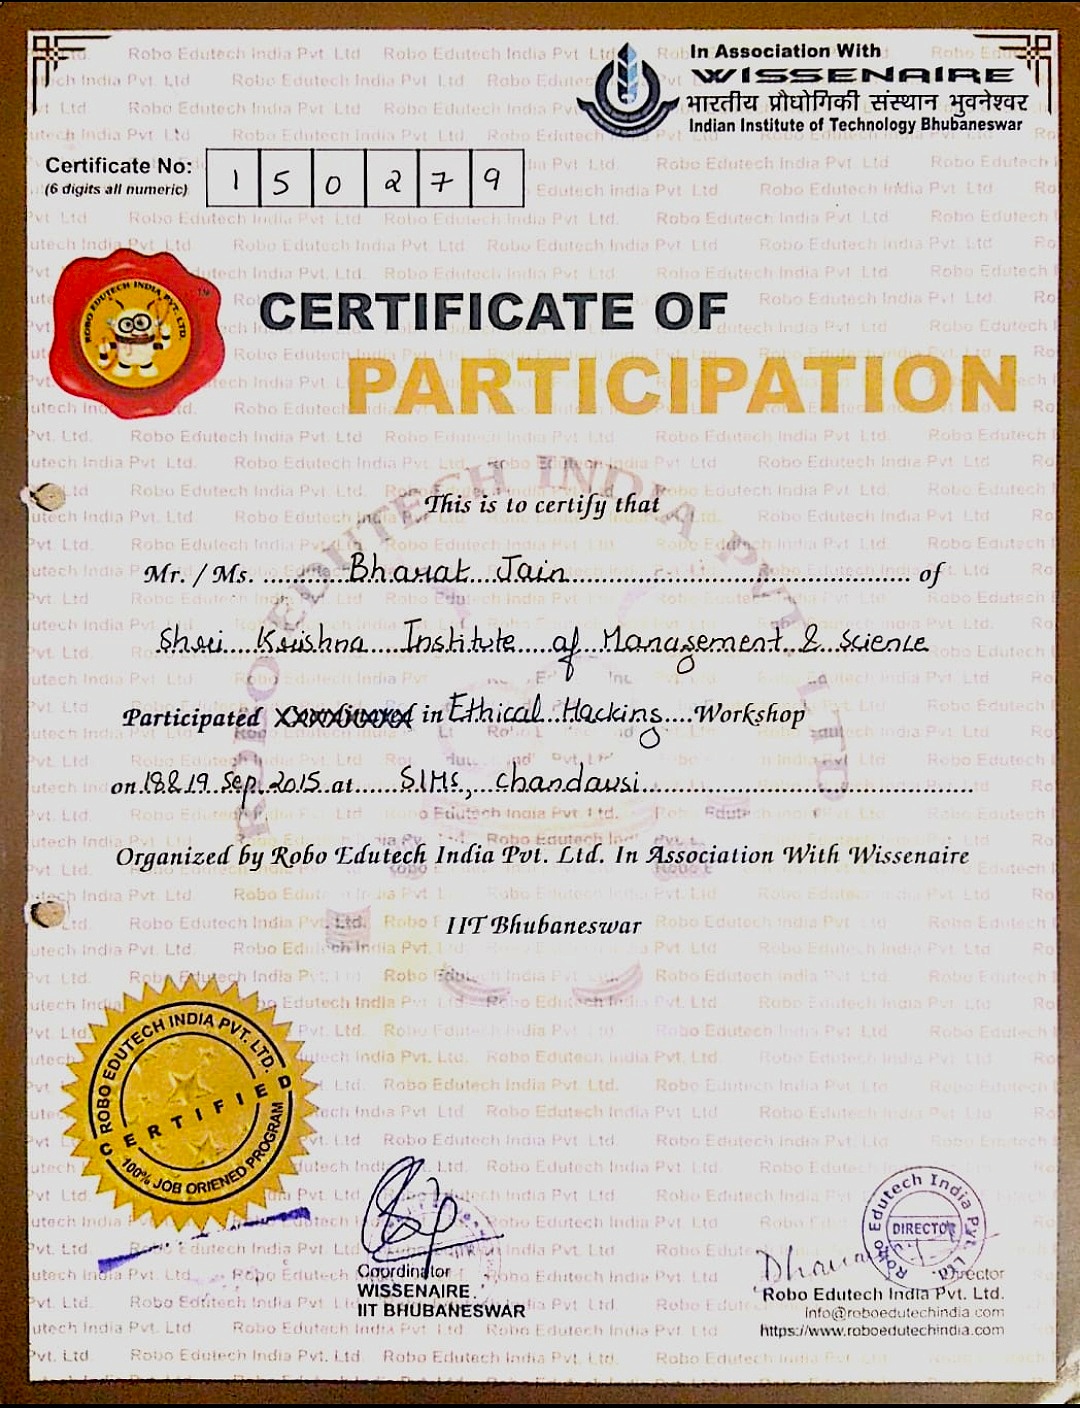 In Association With
WISSENAIRE
भारतीय प्रौघोगिकी संस्थान भुवनेश्वर
Indian Institute of Technology Bhubaneswar
Certificate No:
(6 digits all numeric)
1 5 0 2 7 9
ROBO EDUTECH INDIA PVT. LTD.
TM
CERTIFICATE OF
PARTICIPATION
ROBO EDUTECH INDIA PVT. LTD
This is to certify that
Mr. / Ms. Bharat Jain of
Shri Krishna Institute of Management & Science
Participated in Ethical Hacking Workshop
on 18 & 19 Sep. 2015 at SIMS, Chandausi
Organized by Robo Edutech India Pvt. Ltd. In Association With Wissenaire
IIT Bhubaneswar
ROBO EDUTECH INDIA PVT. LTD.
CERTIFIED
100% JOB ORIENED PROGRAM
Coordinator
WISSENAIRE
IIT BHUBANESWAR
Robo Edutech India Pvt. Ltd.
DIRECTOR
Director
Robo Edutech India Pvt. Ltd.
info@roboedutechindia.com
https://www.roboedutechindia.com